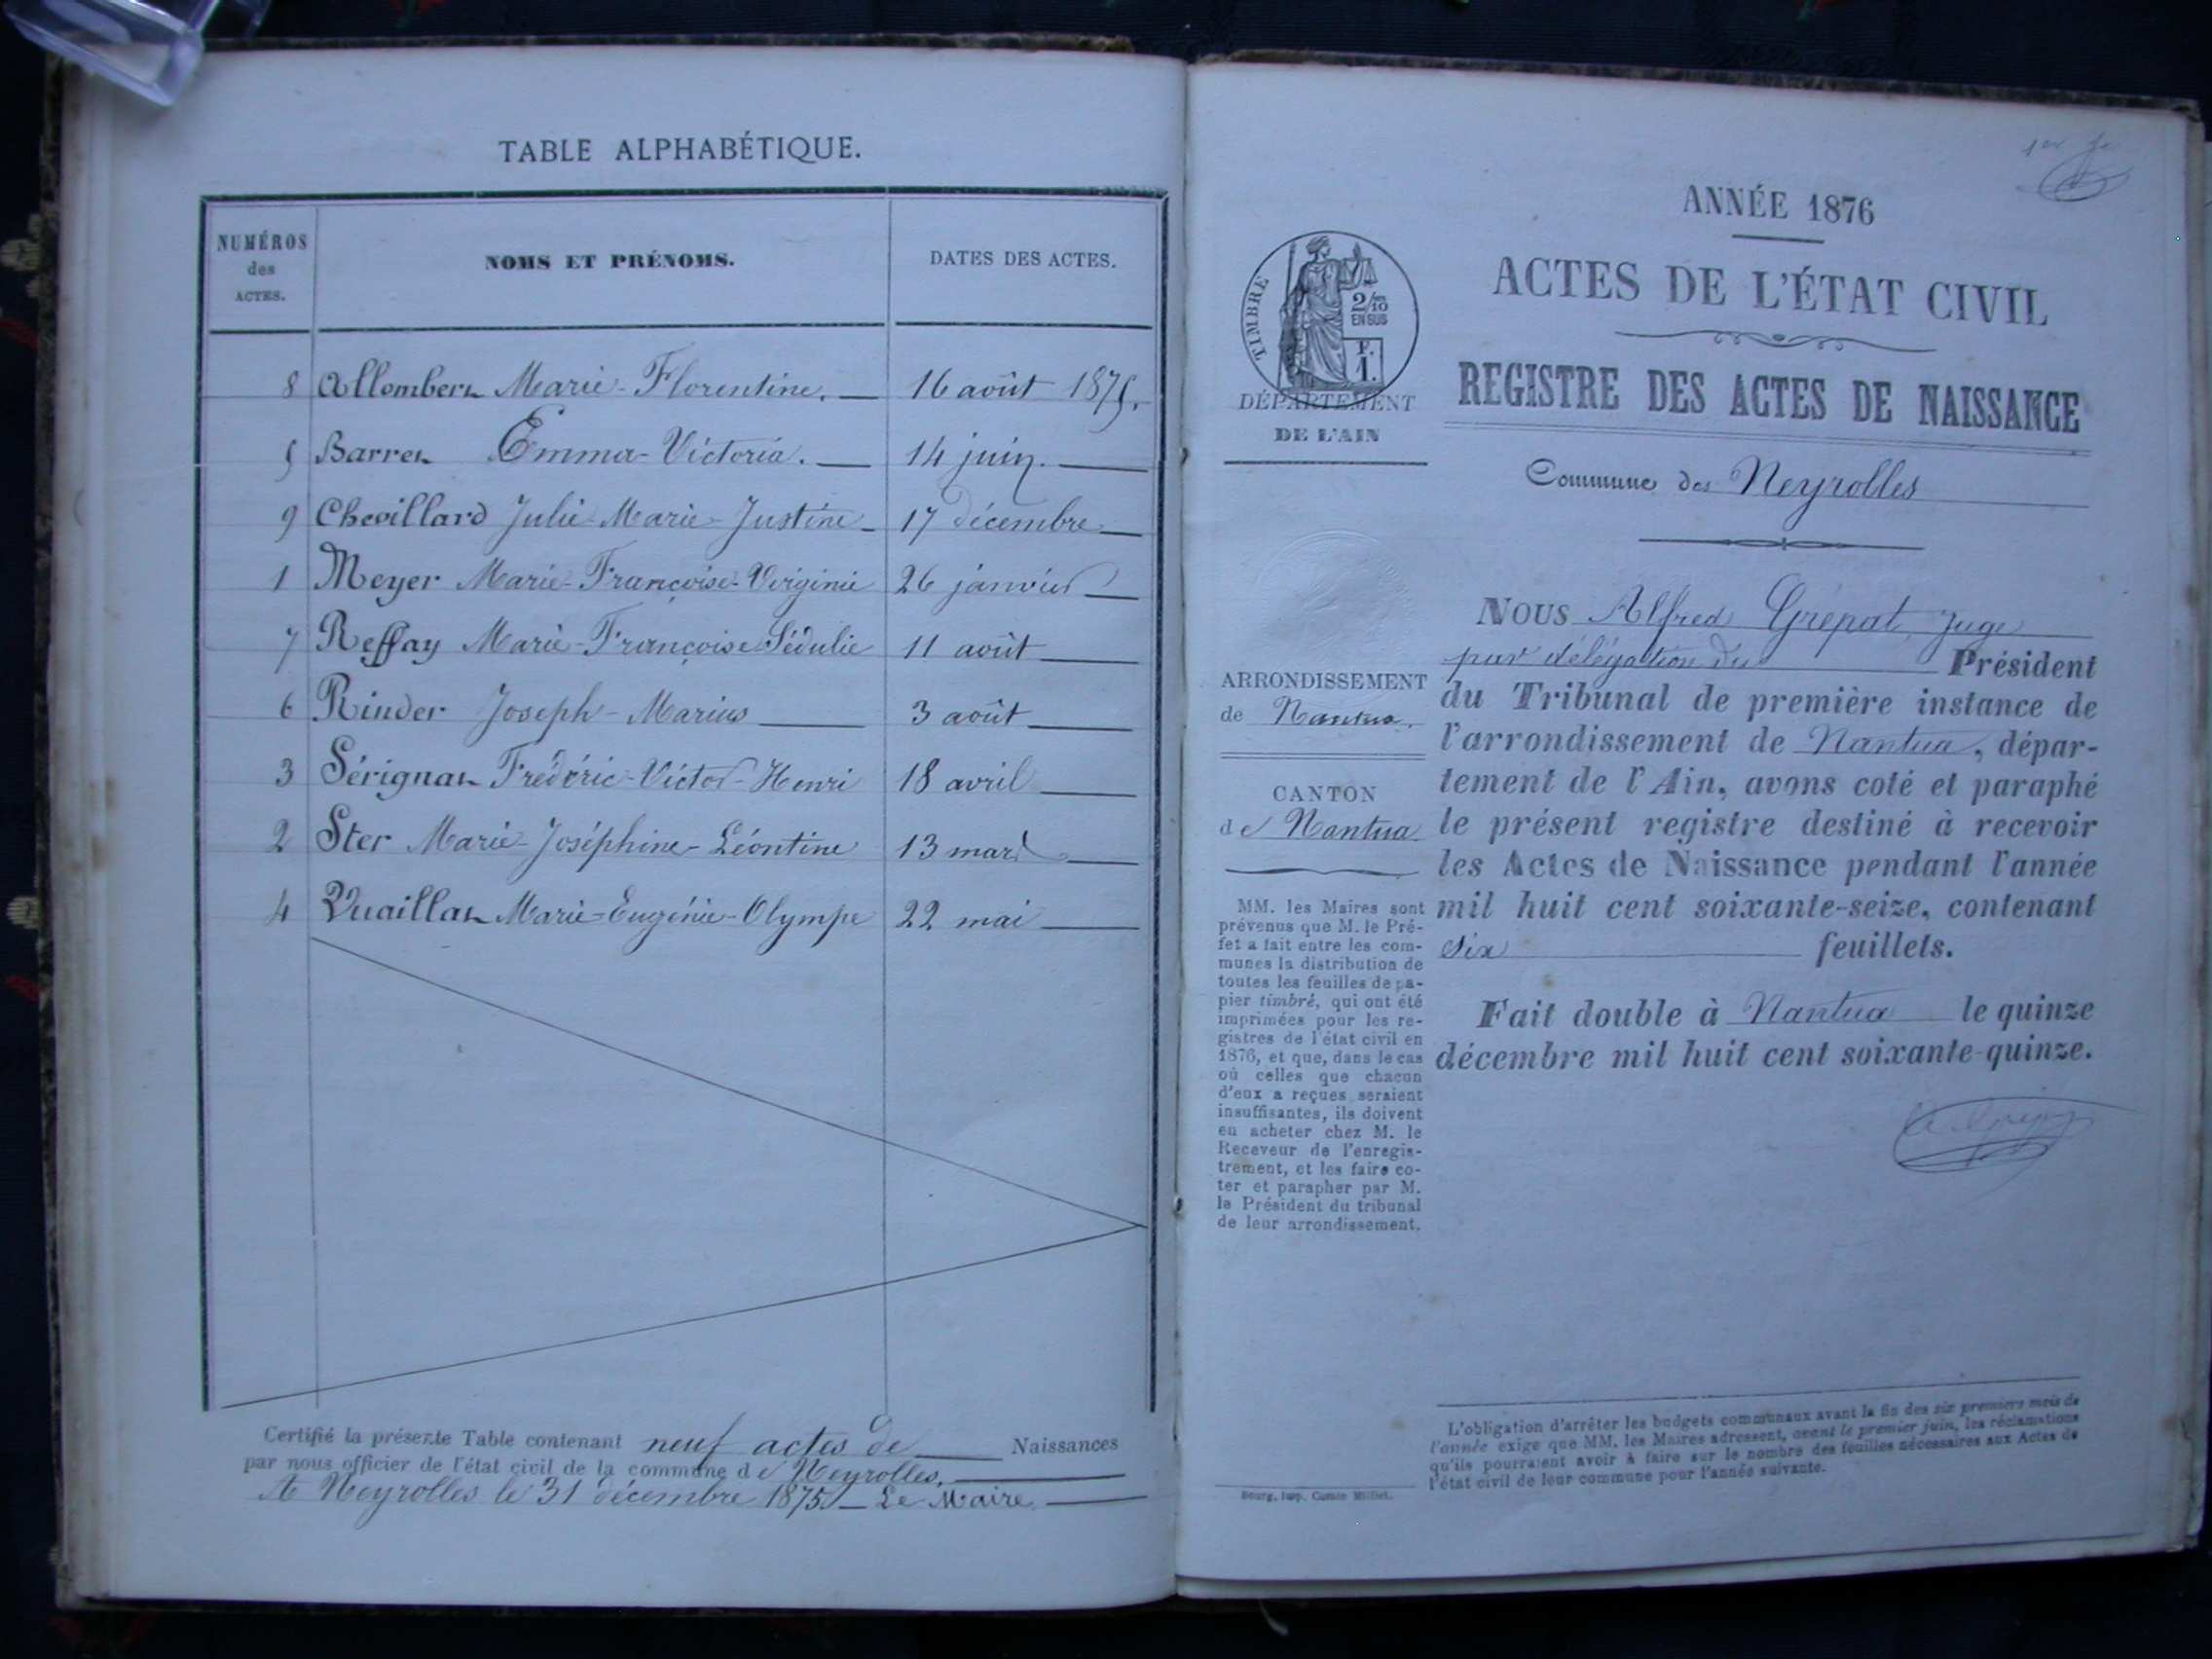 TABLE ALPHABÉTIQUE.
NUMÉROS
des
ACTES.
NOMS ET PRÉNOMS.
DATES DES ACTES.
8 Allombert Marie-Florentine. 16 août 1875.
5 Barret Emma-Victoria. 14 juin.
9 Chevillard Julie-Marie-Justine 17 décembre
1 Meyer Marie-Françoise-Virginie 26 janvier
7 Reffay Marie-Françoise Sédulie 11 août
6 Rinder Joseph-Marius 3 août
3 Sérignat Frédéric-Victor-Henri 18 avril
2 Ster Marie-Joséphine-Léontine 13 mars
4 Vuaillat Marie-Eugénie-Olympe 22 mai
Certifié la présente Table contenant neuf actes de Naissances
par nous officier de l'état civil de la commune de Neyrolles.
A Neyrolles le 31 décembre 1875. Le Maire.
1er
ANNÉE 1876
ACTES DE L'ÉTAT CIVIL
REGISTRE DES ACTES DE NAISSANCE
Commune des Neyrolles
TIMBRE
2/10
EN SUS
F.
1.
DÉPARTEMENT
DE L'AIN
ARRONDISSEMENT
de Nantua.
CANTON
de Nantua
MM. les Maires sont
prévenus que M. le Pré-
fet a fait entre les com-
munes la distribution de
toutes les feuilles de pa-
pier timbré, qui ont été
imprimées pour les re-
gistres de l'état civil en
1876, et que, dans le cas
où celles que chacun
d'eux a reçues seraient
insuffisantes, ils doivent
en acheter chez M. le
Receveur de l'enregis-
trement, et les faire co-
ter et parapher par M.
le Président du tribunal
de leur arrondissement.
NOUS Alfred Grépat, Juge
par délégation du Président
du Tribunal de première instance de
l'arrondissement de Nantua, dépar-
tement de l'Ain, avons coté et paraphé
le présent registre destiné à recevoir
les Actes de Naissance pendant l'année
mil huit cent soixante-seize, contenant
six feuillets.
Fait double à Nantua le quinze
décembre mil huit cent soixante-quinze.
L'obligation d'arrêter les budgets communaux avant la fin des six premiers mois de
l'année exige que MM. les Maires adressent, avant le premier juin, les réclamations
qu'ils pourraient avoir à faire sur le nombre des feuilles nécessaires aux Actes de
l'état civil de leur commune pour l'année suivante.
Bourg, Imp. Comte Milliet.